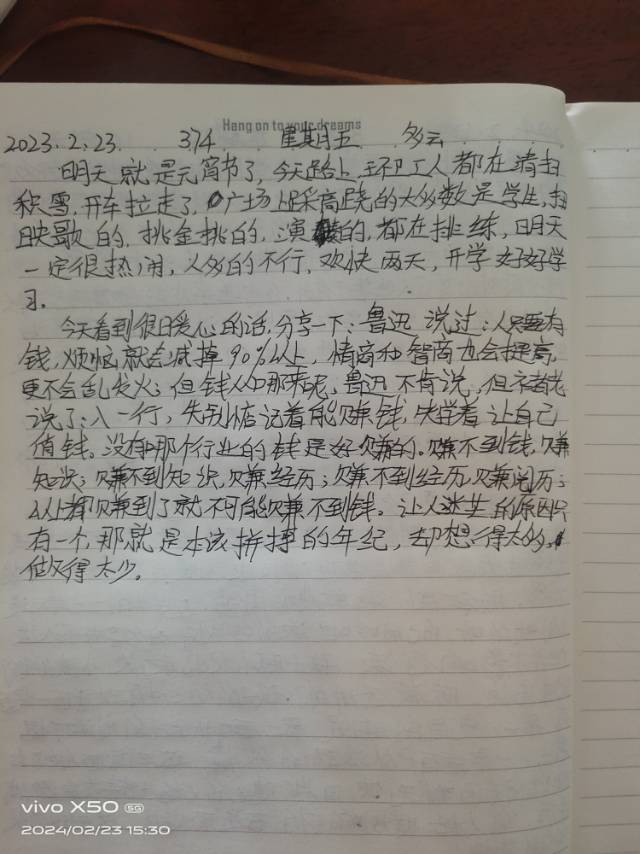 Hang on to your dreams
2023.2.23. 374 星期五 多云
明天就是元宵节了，今天路上，环卫工人都在清扫
积雪，开车拉走了，广场上踩高跷的大多数是学生，扭
秧歌的，挑金挑的，演的，都在排练，明天
一定很热闹，人多的不行，欢快两天，开学好好学
习。
今天看到很暖心的话，分享一下：鲁迅说过：人只要有
钱，烦恼就会减掉90%以上，情商和智商也会提高，
更不会乱发火；但钱从哪来呢，鲁迅不肯说，但
说了：入一行，先别惦记着能赚钱，先学着让自己
值钱。没有哪个行业的钱是好赚的。赚不到钱，赚
知识；赚不到知识，赚经历；赚不到经历，赚阅历；
以上都赚到了就不可能赚不到钱。让人迷茫的原因只
有一个，那就是本该拼搏的年纪，却想得太多，
做得太少。
vivo X50 5G
2024/02/23 15:30